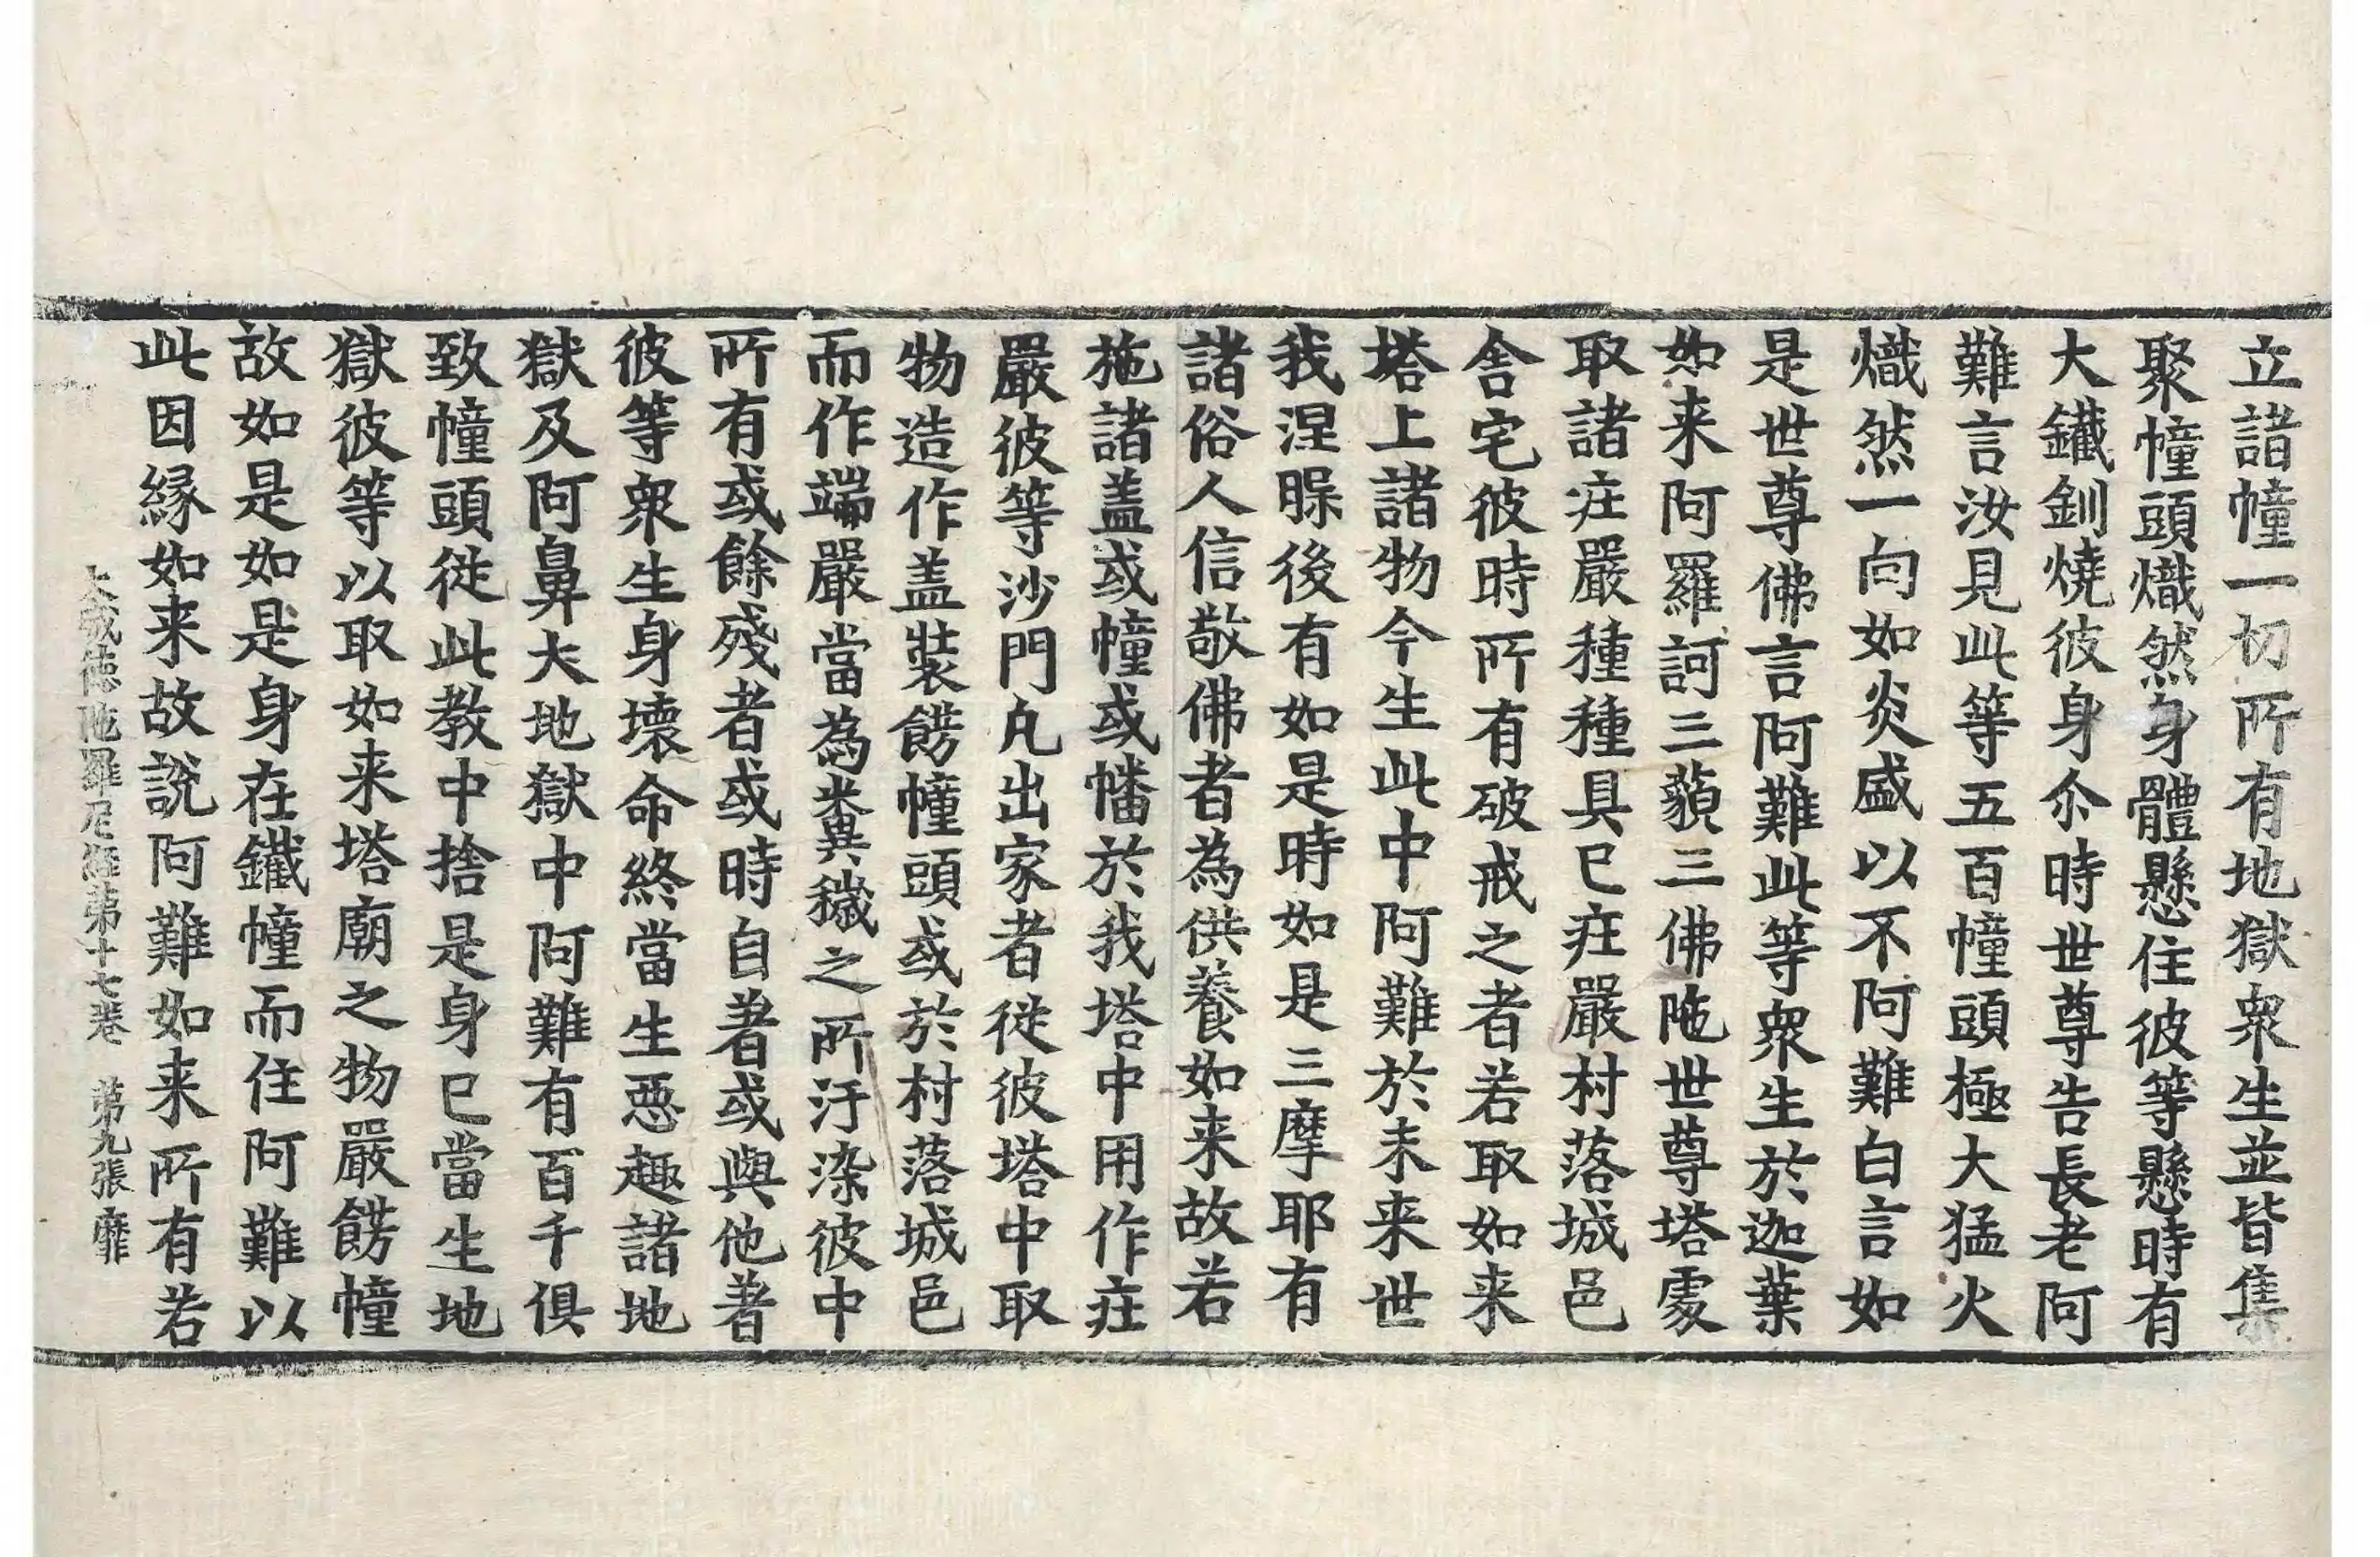 立諸幢一切所有地獄衆生並皆集
聚幢頭熾然身體懸住彼等懸時有
大鐵釧燒彼身尒時世尊告長老阿
難言汝見此等五百幢頭極大猛火
熾然一向如炎盛以不阿難白言如
是世尊佛言阿難此等衆生於迦葉
如来阿羅訶三藐三佛陁世尊塔䖏
取諸庄嚴種種具已庄嚴村落城邑
舎宅彼時所有破戒之者若取如来
塔上諸物今生此中阿難於未来世
我涅槃後有如是時如是三摩耶有
諸俗人信敬佛者為供養如来故若
施諸盖或幢或幡於我塔中用作庄
嚴彼等沙門凡出家者從彼塔中取
物造作盖裝餝幢頭或於村落城邑
而作端嚴當為糞穢之所汙染彼中
所有或餘殘者或時自著或與他著
彼等衆生身壞命終當生惡趣諸地
獄及阿鼻大地獄中阿難有百千俱
致幢頭從此教中捨是身已當生地
獄彼等以取如来塔廟之物嚴餝幢
故如是如是身在鐵幢而住阿難以
此因縁如来故說阿難如来所有若
大威德陁羅尼經第十七卷 第九張 靡